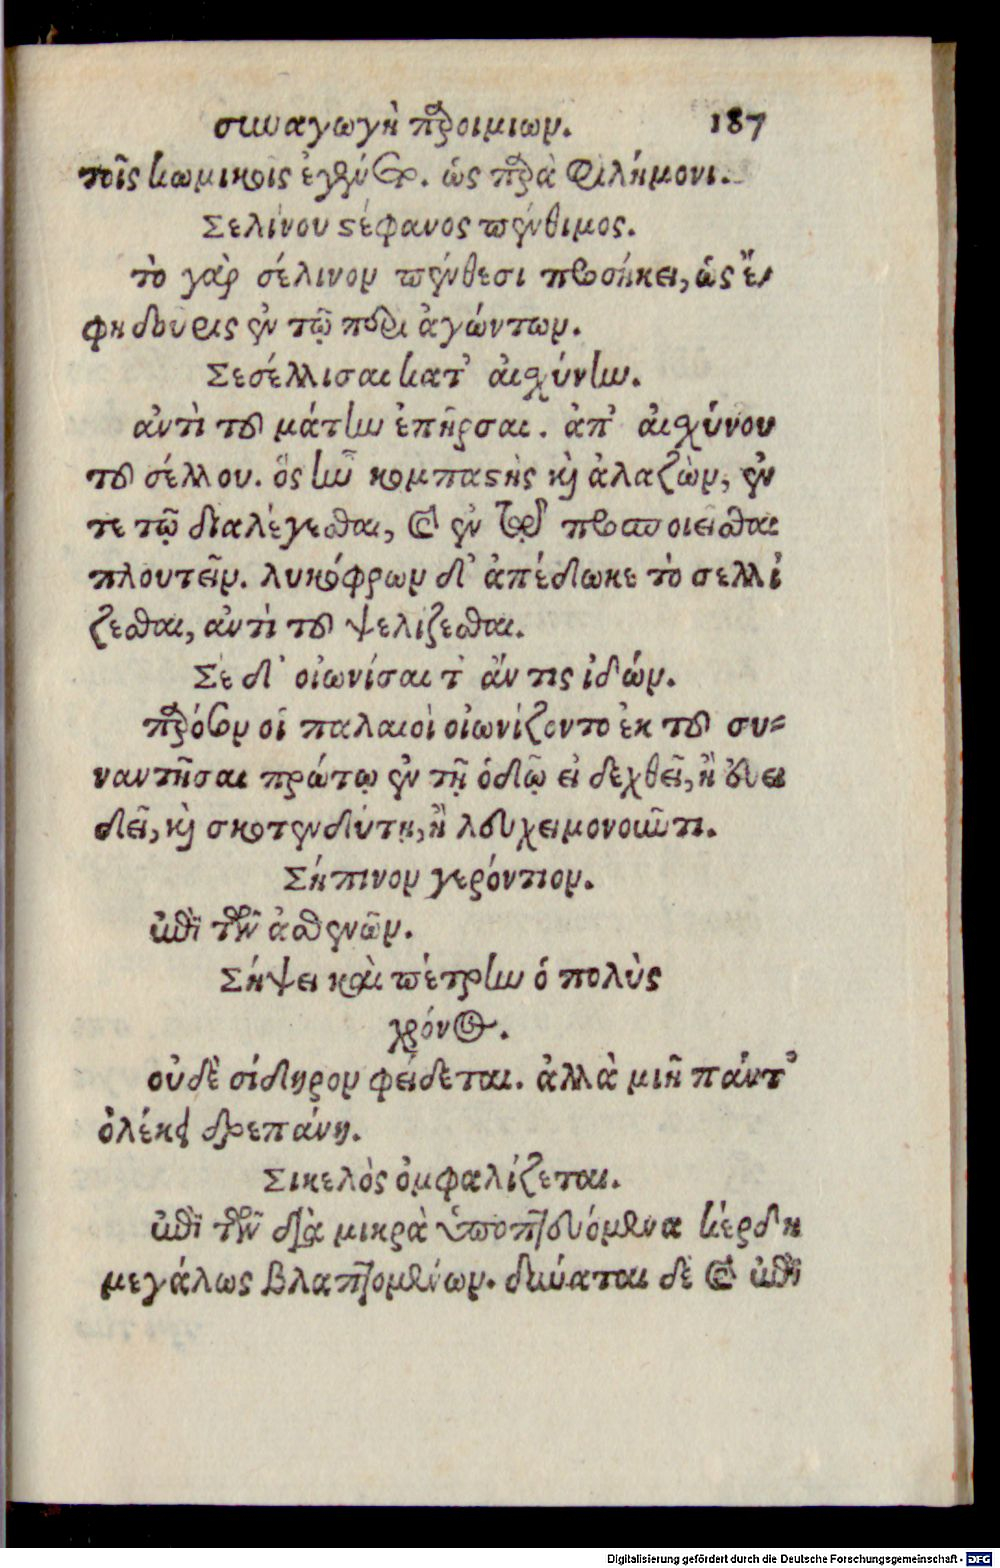 συναγωγὴ παροιμιων. 187
τοῖς κωμικοῖς ἐγένετο. ὡς παρὰ Φιλήμονι.
Σελίνου στέφανος πένθιμος.
τὸ γὰρ σέλινον πένθεσι προσήκει, ὡς ἔ-
φη δουρις ἐν τῷ περι ἀγώντων.
Σεσέλλισαι κατ' αἰσχύνην.
ἀντὶ τοῦ μάτην ἐπῆρσαι. ἀπ' αἰσχύνου
τοῦ σέλλου. ὅς ἦν κομπαστὴς καὶ ἀλαζὼν, ἐν
τε τῷ διαλέγεσθαι, καὶ ἐν τῷ προσποιεῖσθαι
πλουτεῖν. λυκόφρων δ' ἀπέδωκε τὸ σελλί
ζεσθαι, ἀντὶ τοῦ ψελίζεσθαι.
Σε δ' οἰωνίσαιτ' ἄν τις ἰδών.
παρόσον οἱ παλαιοὶ οἰωνίζοντο ἐκ τοῦ συ-
ναντῆσαι πρώτῳ ἐν τῇ ὁδῷ εἰ δεχθεῖ, ἢ δυει
δεῖ, καὶ σκοτενδύτῃ, ἢ λευχειμονοῦντι.
Σήπινον γερόντιον.
ἐπὶ τῶν ἀσθενῶν.
Σήψει καὶ πέτρην ὁ πολὺς
χρόνος.
οὐδὲ σίδηρον φείδεται. ἀλλὰ μιῇ πάντ'
ὀλέκει δρεπάνῃ.
Σικελὸς ὀμφαλίζεται.
ἐπὶ τῶν διὰ μικρὰ ὑποπτευόμενα κέρδη
μεγάλως βλαπτομένων. δύναται δὲ καὶ ἐπὶ
Digitalisierung gefördert durch die Deutsche Forschungsgemeinschaft - DFG